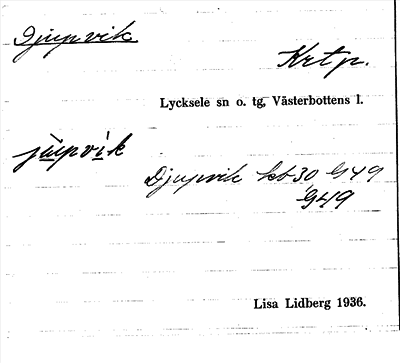 Djupvik
Krtp.
Lycksele sn o. tg, Västerbottens l.
jupvik
Djupvik kb 30 G49
G49
Lisa Lidberg 1936.